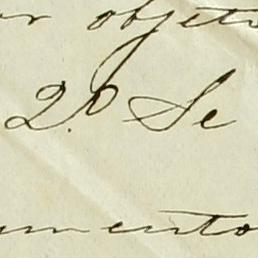 r objeto
2.º Se
umento